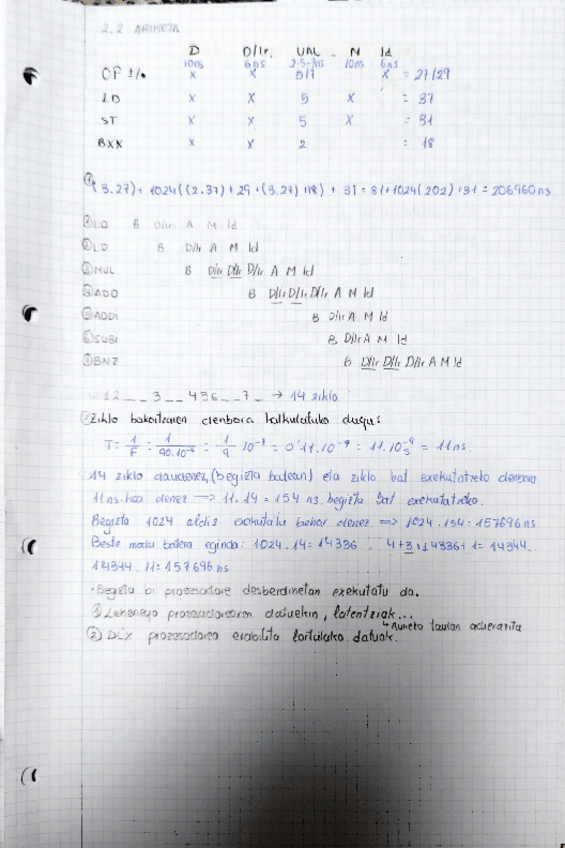 2.2 ARIKETA
D D/Ir. UAL N Id
10ns 6ns 2-5-7ns 10ns 6ns
OP 1/0 x x 5/7 x = 27/29
LD x x 5 x = 37
ST x x 5 x = 31
BXX x x 2 = 18
① (3.27) + 1024((2.37) + 29 + (3.27) + 18) + 31 = 81 + 1024(202) + 31 = 206960 ns
① LD B D/Ir A M Id
② LD B D/Ir A M Id
③ MUL B D/Ir D/Ir D/Ir A M Id
④ ADD B D/Ir D/Ir D/Ir A M Id
⑤ ADDI B D/Ir A M Id
⑥ SUBI B D/Ir A M Id
⑦ BNZ B D/Ir D/Ir D/Ir A M Id
12__3__456__7_ → 14 ziklo
② Ziklo bakoitzaren denbora kalkulatuko dugu:
T = 1/F = 1/90.10⁻⁶ = 1/9 10⁻⁹ = 0'11.10⁻⁹ = 11.10⁻⁹ s = 11 ns.
14 ziklo daudenez, (begizta batean) eta ziklo bat exekutatzeko denbora
11ns-koa denez ⟹ 11.14 = 154 ns. begizta bat exekutatzeko.
Begizta 1024 aldiz exekutatu behar denez ⟹ 1024.154 = 157696 ns
Beste modu batera eginda: 1024.14 = 14336. 4+3+14336+1 = 14344.
14344.11 = 157696 ns
· Begizta bi prozesadore desberdinetan exekutatu da.
① Lehenengo prozesadorearen datuekin, latentziak...
↳ Aurreko taulan adierazita
② DLX prozesadorea erabilita lortutako datuak.